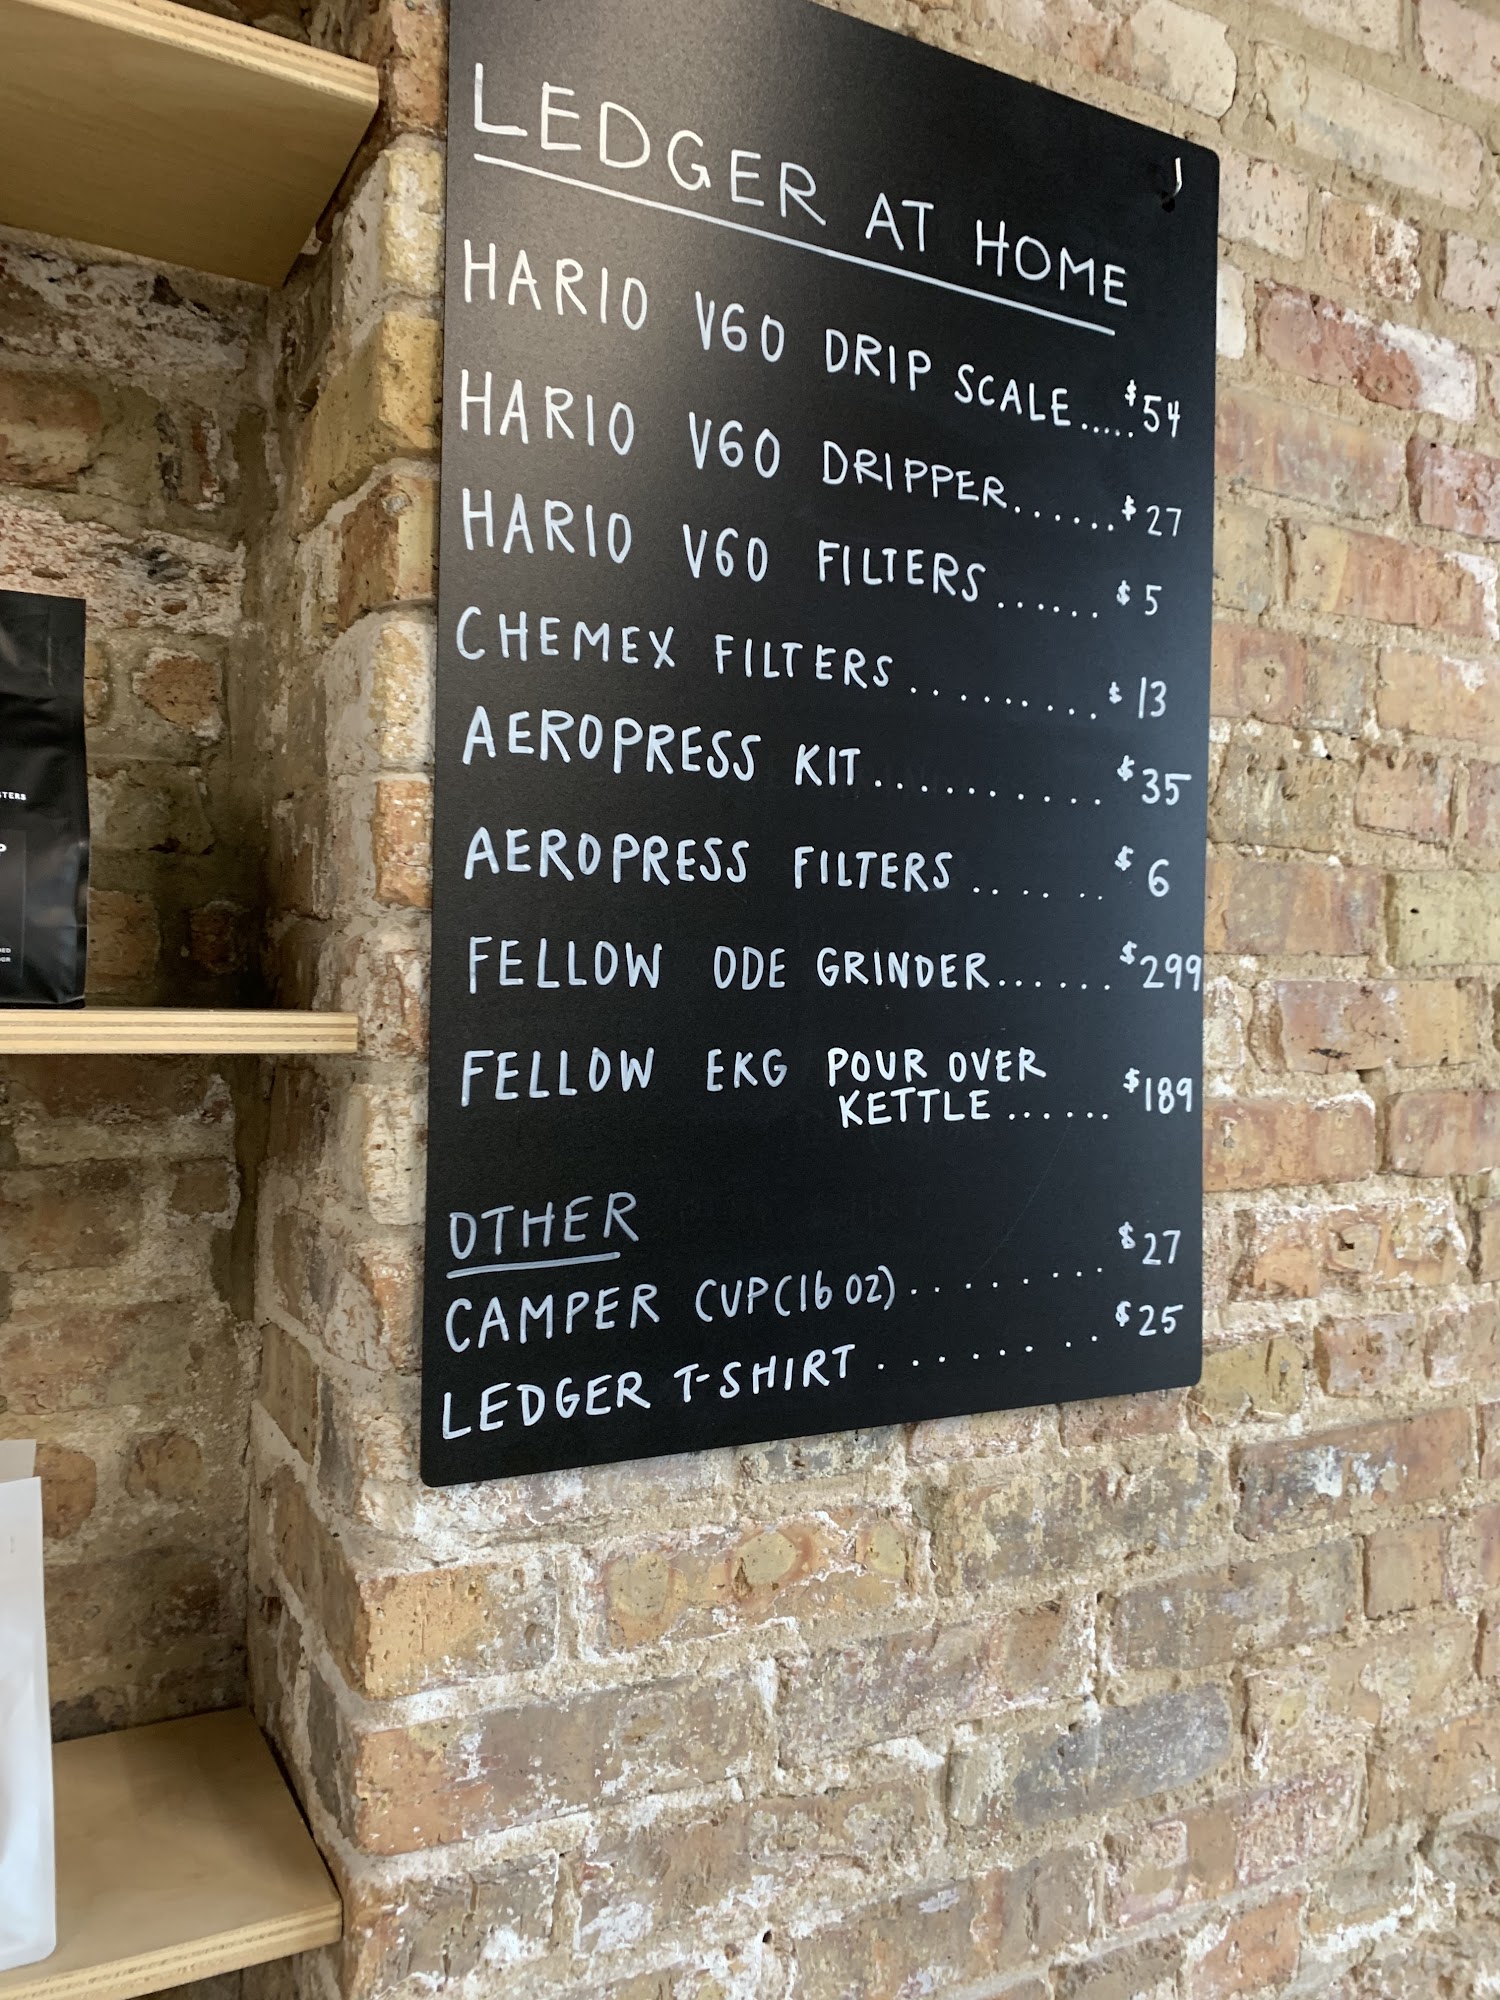 LEDGER AT HOME
HARIO V60 DRIP SCALE..... $54
HARIO V60 DRIPPER...... $27
HARIO V60 FILTERS ...... $5
CHEMEX FILTERS ........ $13
AEROPRESS KIT.......... $35
AEROPRESS FILTERS ...... $6
FELLOW ODE GRINDER...... $299
FELLOW EKG POUR OVER
KETTLE ...... $189
OTHER
CAMPER CUP (16 OZ) ....... $27
LEDGER T-SHIRT ........ $25
STERS